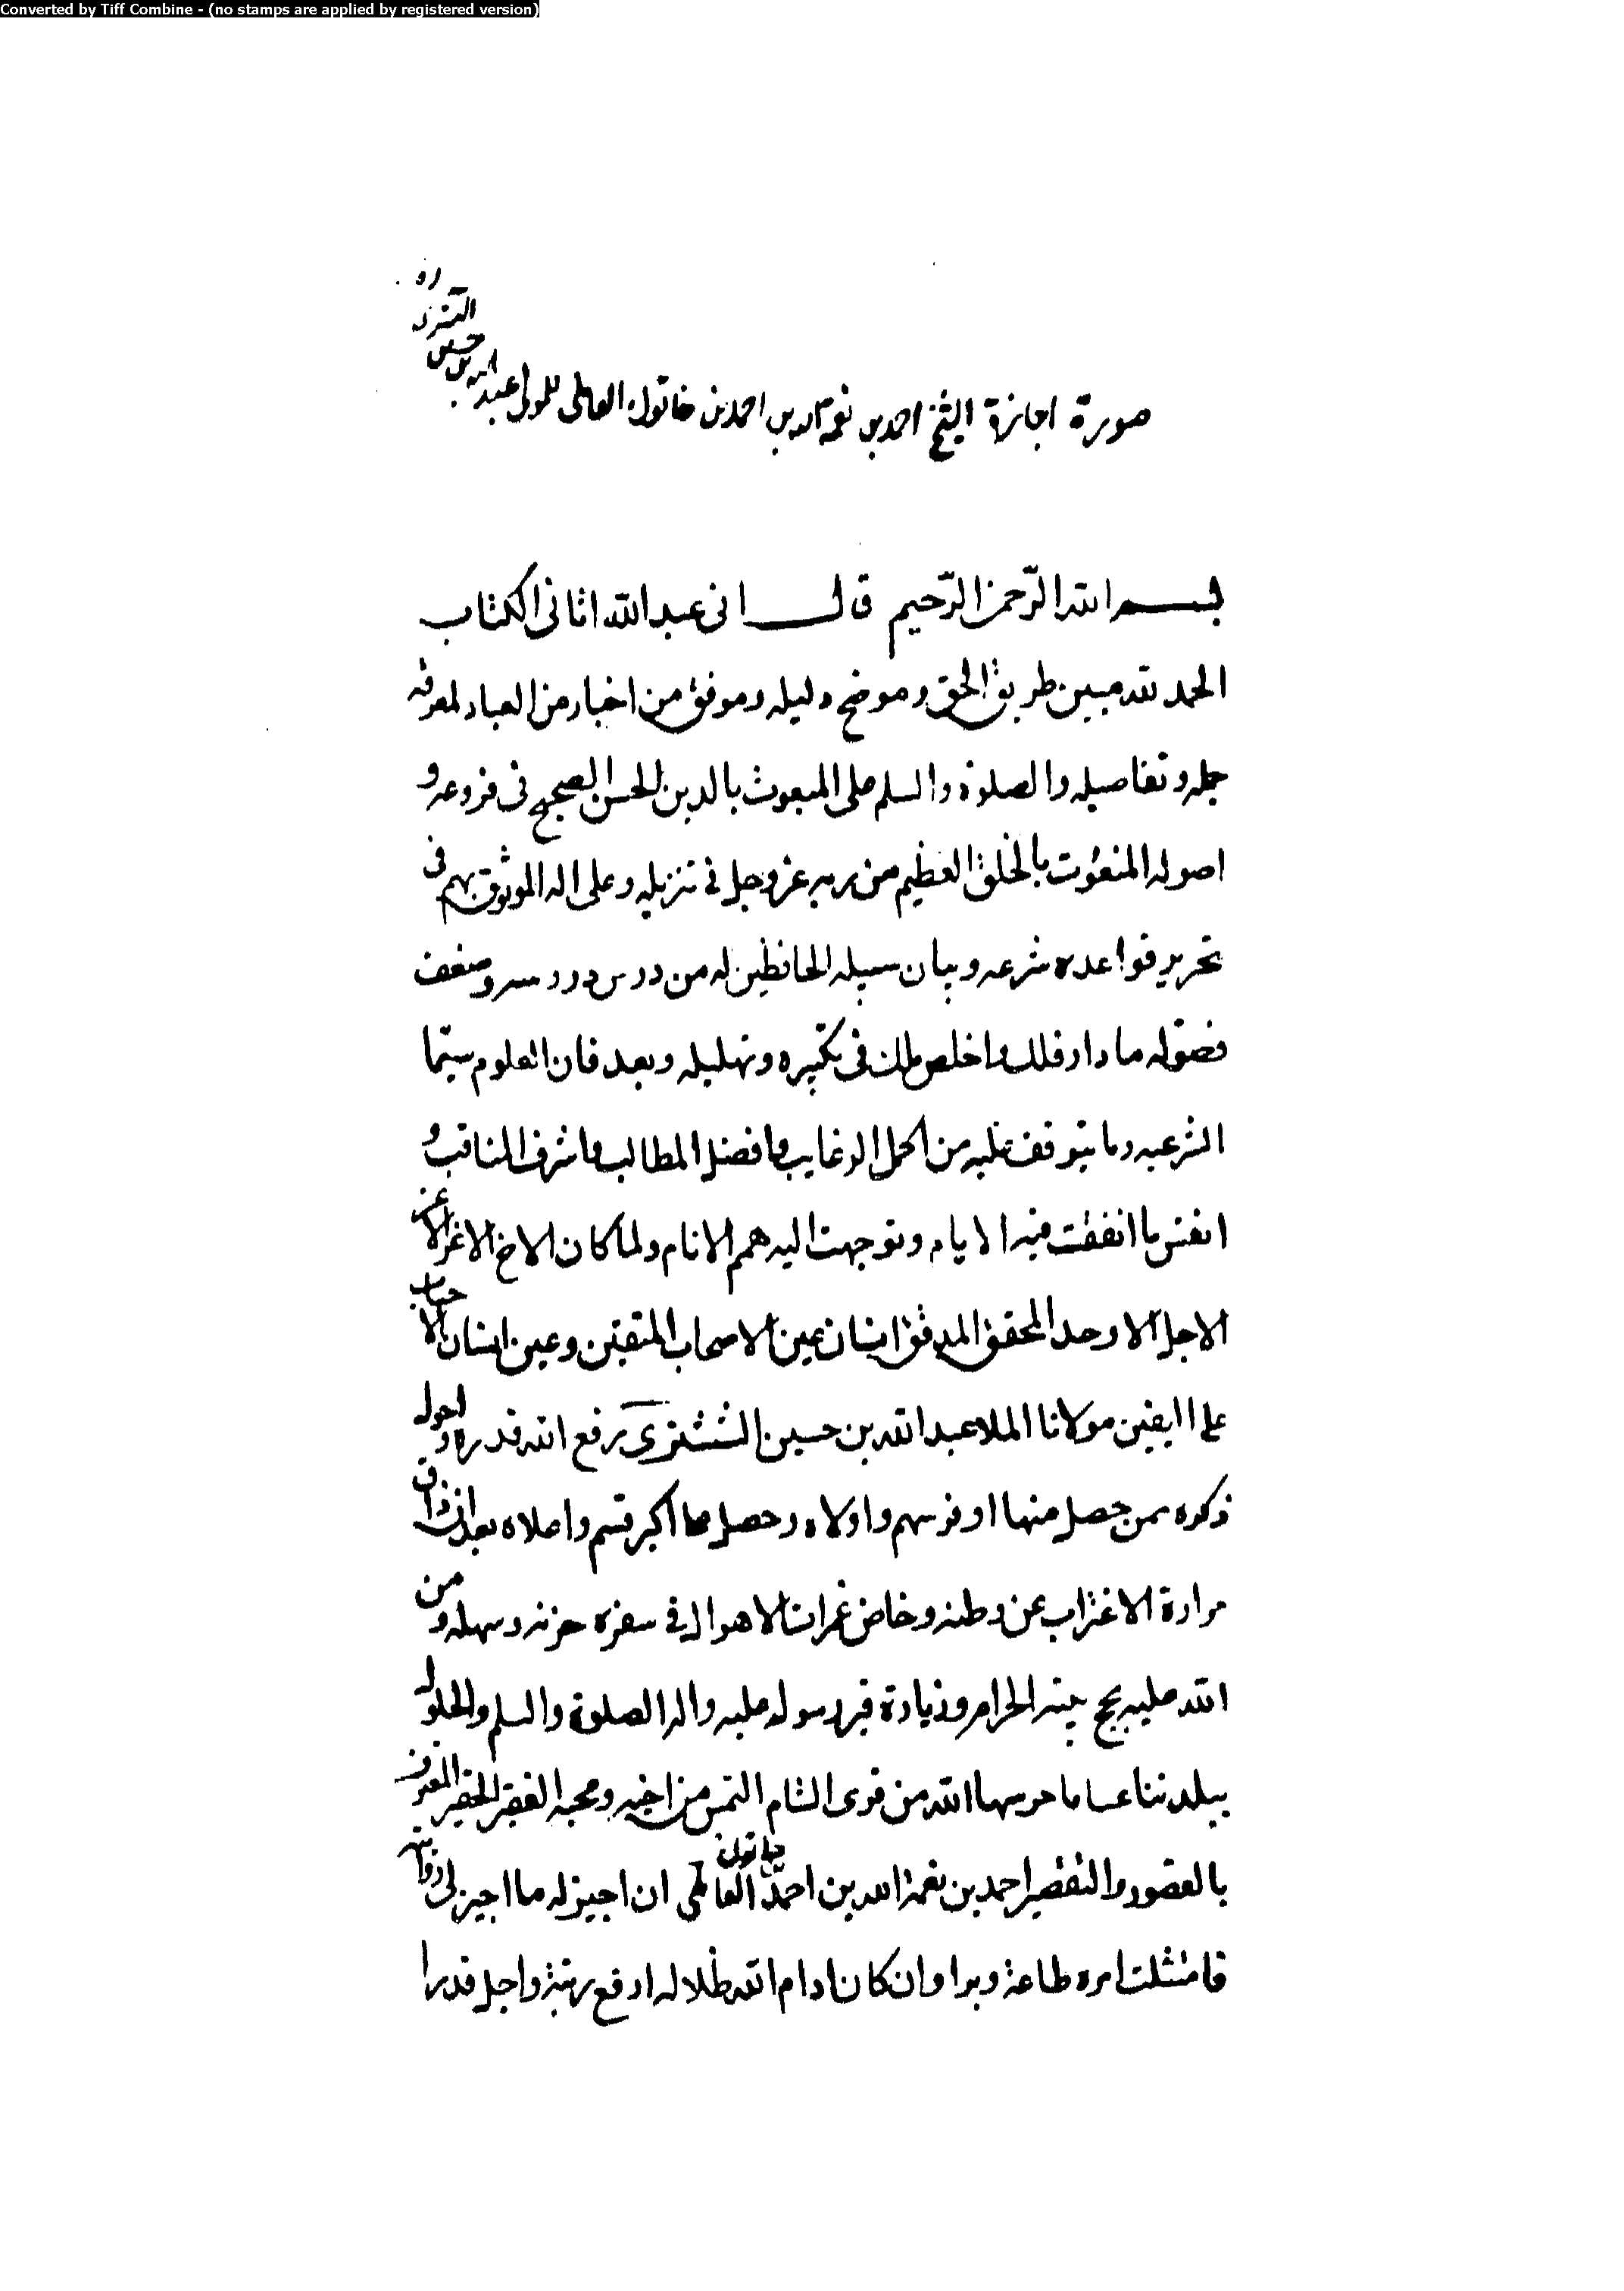 Converted by Tiff Combine - (no stamps are applied by registered version)
صورة اجازة الشيخ احمد بن نعمة الله بن احمد بن خاتون العاملى للمولى عبد الله بن حسين التسترى ره
بسم الله الرّحمن الرّحيم قال انى عبد الله اتانى الكتاب
الحمد لله مبين طريق الحق وموضح دليله وموفق من اختار من العباد لمعرفة
جمله وتفاصيله والصلوة والسلم على المبعوث بالدين الحسن الصحيح فى فروعه و
اصوله المنعوت بالخلق العظيم من ربه عز وجل فى تنزيله وعلى اله الموثوق بهم فى
تحرير قواعده شرعه وبيان سبيله الحافظين له من دروس وضعف
فصوله ما دار فلك واخلص ملك فى تكبيره وتهليله وبعد فان العلوم سيّما
الشرعيه وما يتوقف عليه من اكمل الرغايب وافضل المطالب واشرف المناقب و
انفس ما انفقت فيه الايام وتوجهت اليه همم الانام ولما كان الاخ الاغر الاعز
الاجل الاوحد المحقق المدقق انسان عين الاصحاب المتقين وعين انسان الاحباب
على اليقين مولانا الملا عبد الله بن حسين الششترى رفع الله قدره و
ذكره ممن حصل منها اوفر سهم واولاه وحصل اكبر قسم واعلاه بعد ان ذاق
مرارة الاغتراب عن وطنه وخاض غمرات الاهوال فى سفره حزنه وسهله ومن
الله عليه بحج بيته الحرام وزيارة قبر رسوله عليه واله الصلوة والسلم والحلول
ببلدتنا عيناثا حرسها الله من قرى الشام التمس من اخيه ومحبه الفقير الحقير المعترف
بالقصور والتقصير احمد بن نعمة الله بن احمد خاتون العاملى ان اجيز له ما اجيز لى روايته
فامتثلت امره طاعة وبرا وان كان ادام الله ظلاله ارفع رتبة واجل قدرا